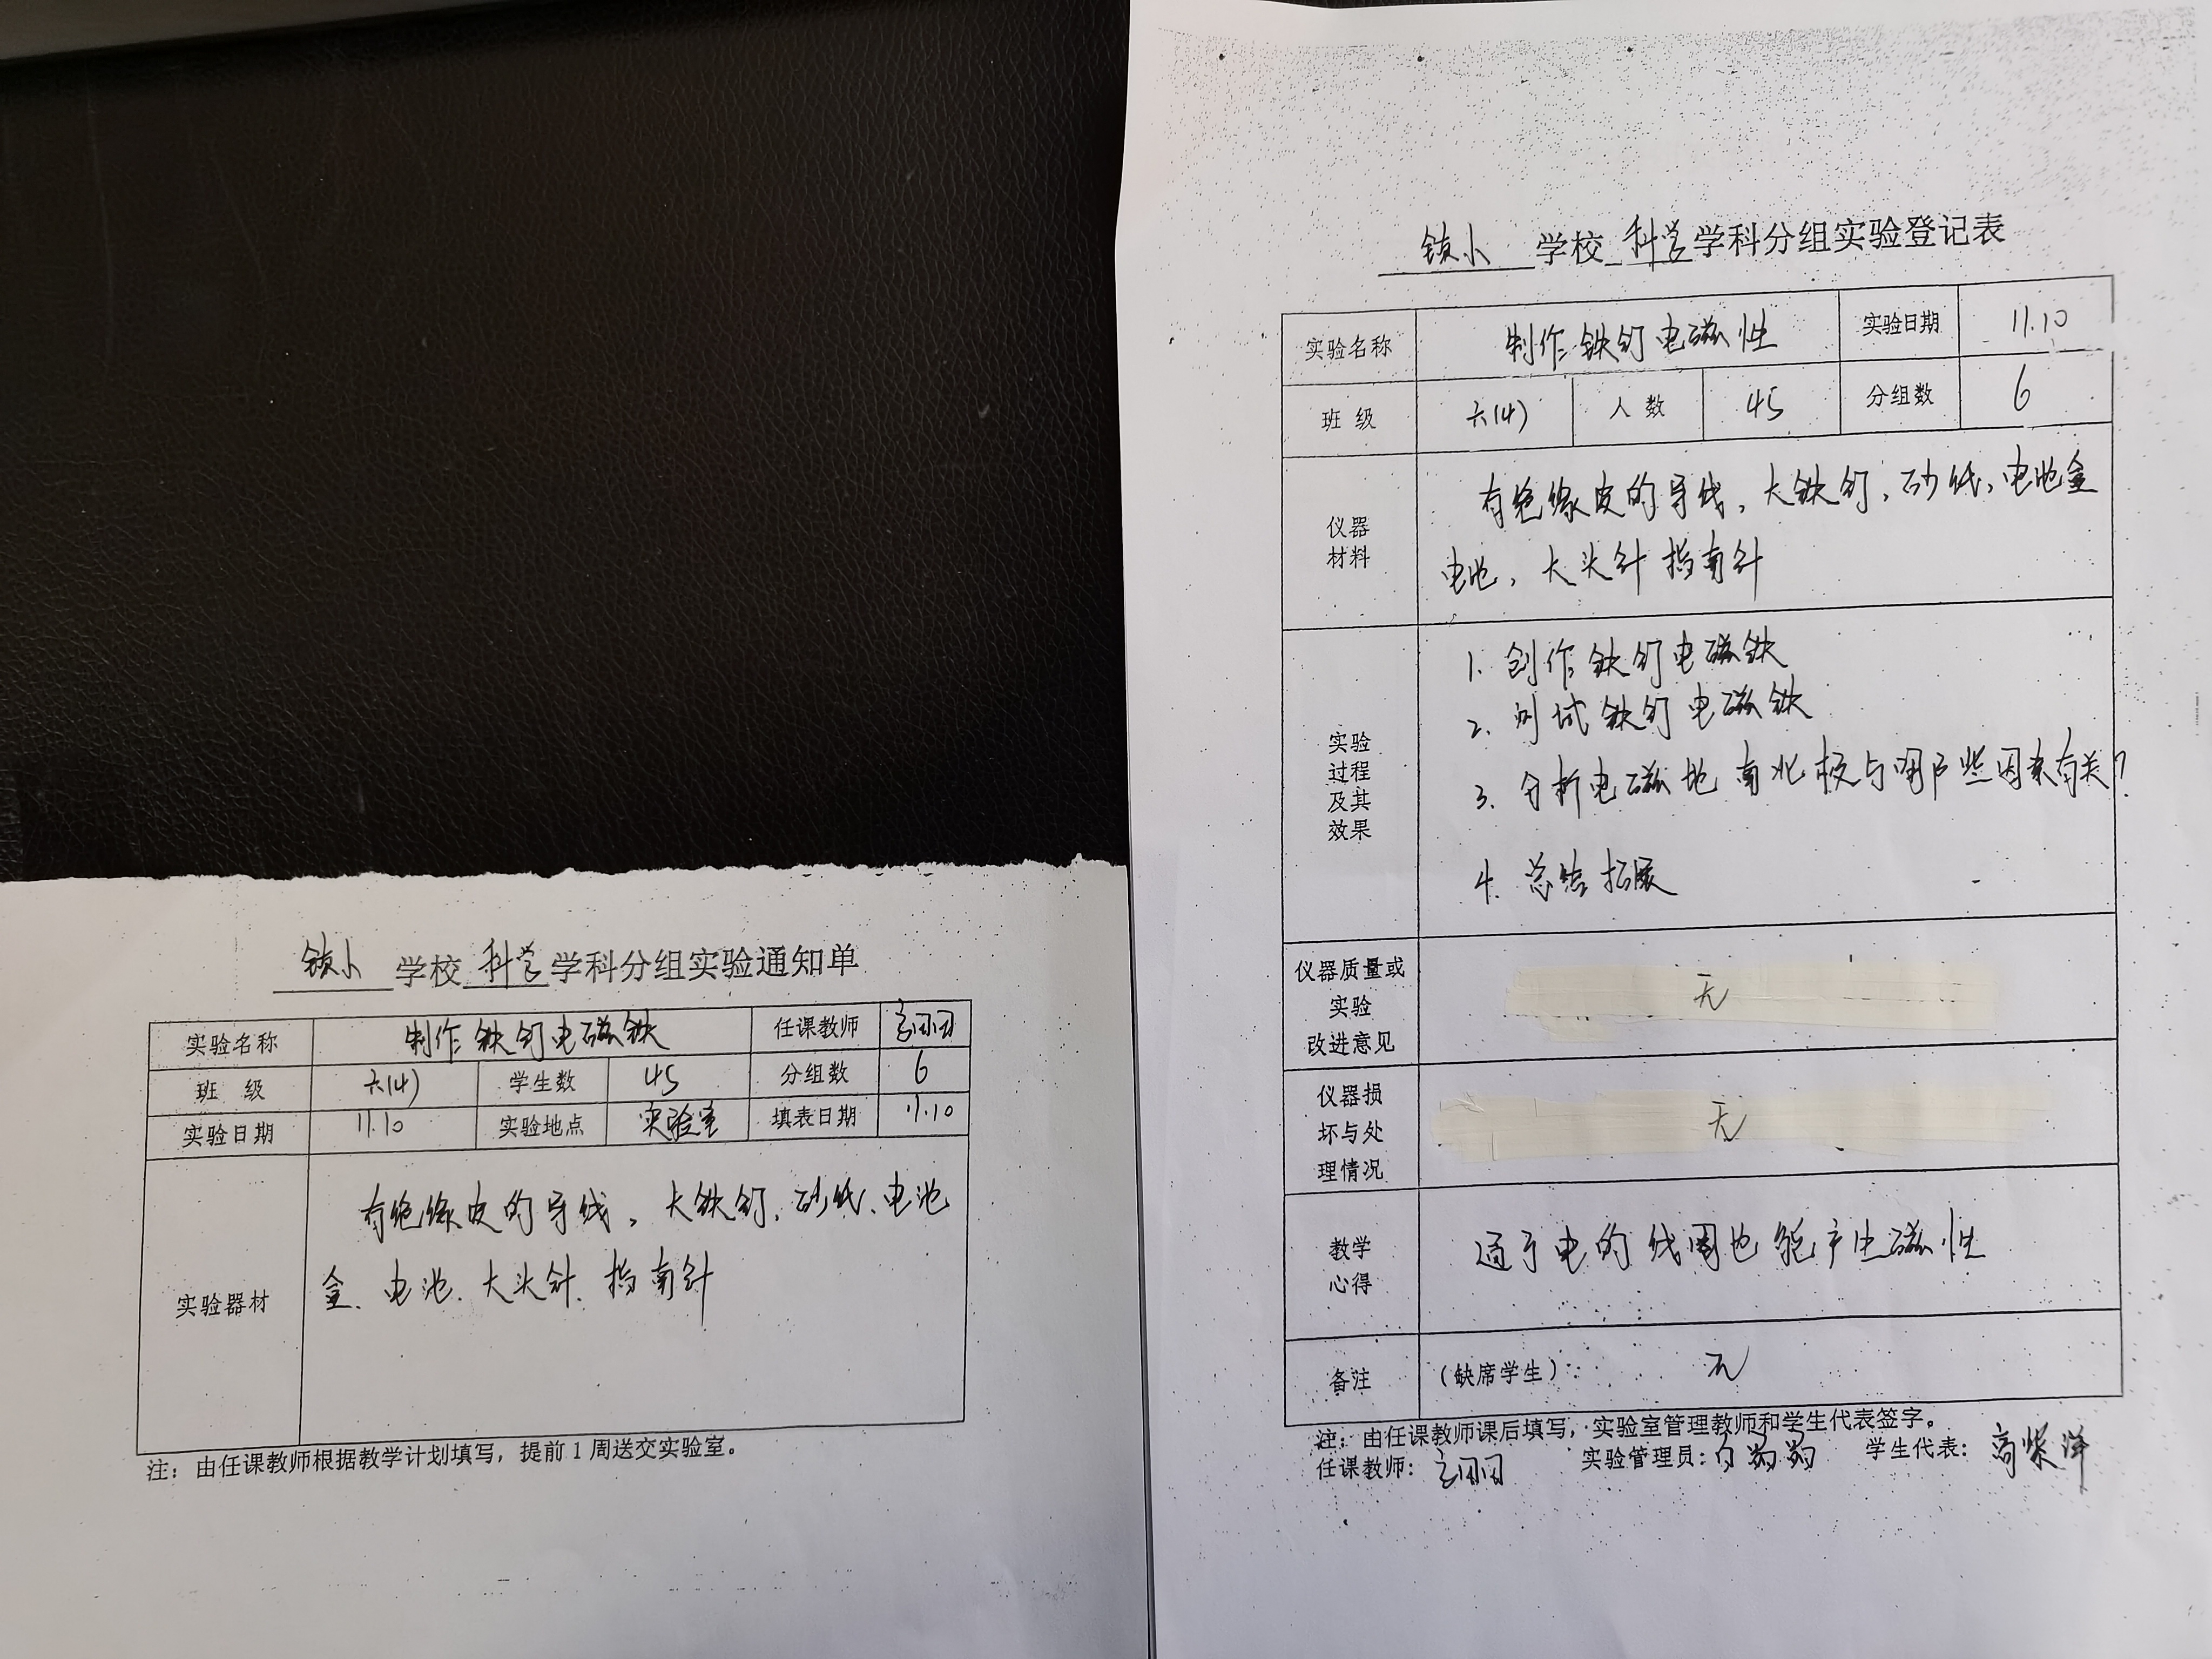 学校 科学 学科分组实验通知单
实验名称 制作铁钉电磁铁 任课教师
班 级 六(4) 学生数 45 分组数 6
实验日期 11.10 实验地点 实验室 填表日期 11.10
实验器材
有绝缘皮的导线,大铁钉、砂纸、电池
盒、电池、大头针、指南针
注:由任课教师根据教学计划填写,提前1周送交实验室。
学校 科学 学科分组实验登记表
实验名称 制作铁钉电磁性 实验日期 11.10
班 级 六(4) 人 数 45 分组数 6
仪器
材料
有绝缘皮的导线,大铁钉,砂纸,电池盒
电池,大头针 指南针
实验
过程
及其
效果
1. 创作铁钉电磁铁
2. 测试铁钉电磁铁
3. 分析电磁地南北极与哪些因素有关?
4. 总结拓展
仪器质量或
实验
改进意见
无
仪器损
坏与处
理情况
无
教学
心得
通了电的线圈也能产生磁性
备注 (缺席学生): 无
注:由任课教师课后填写,实验室管理教师和学生代表签字。
任课教师: 实验管理员: 学生代表: